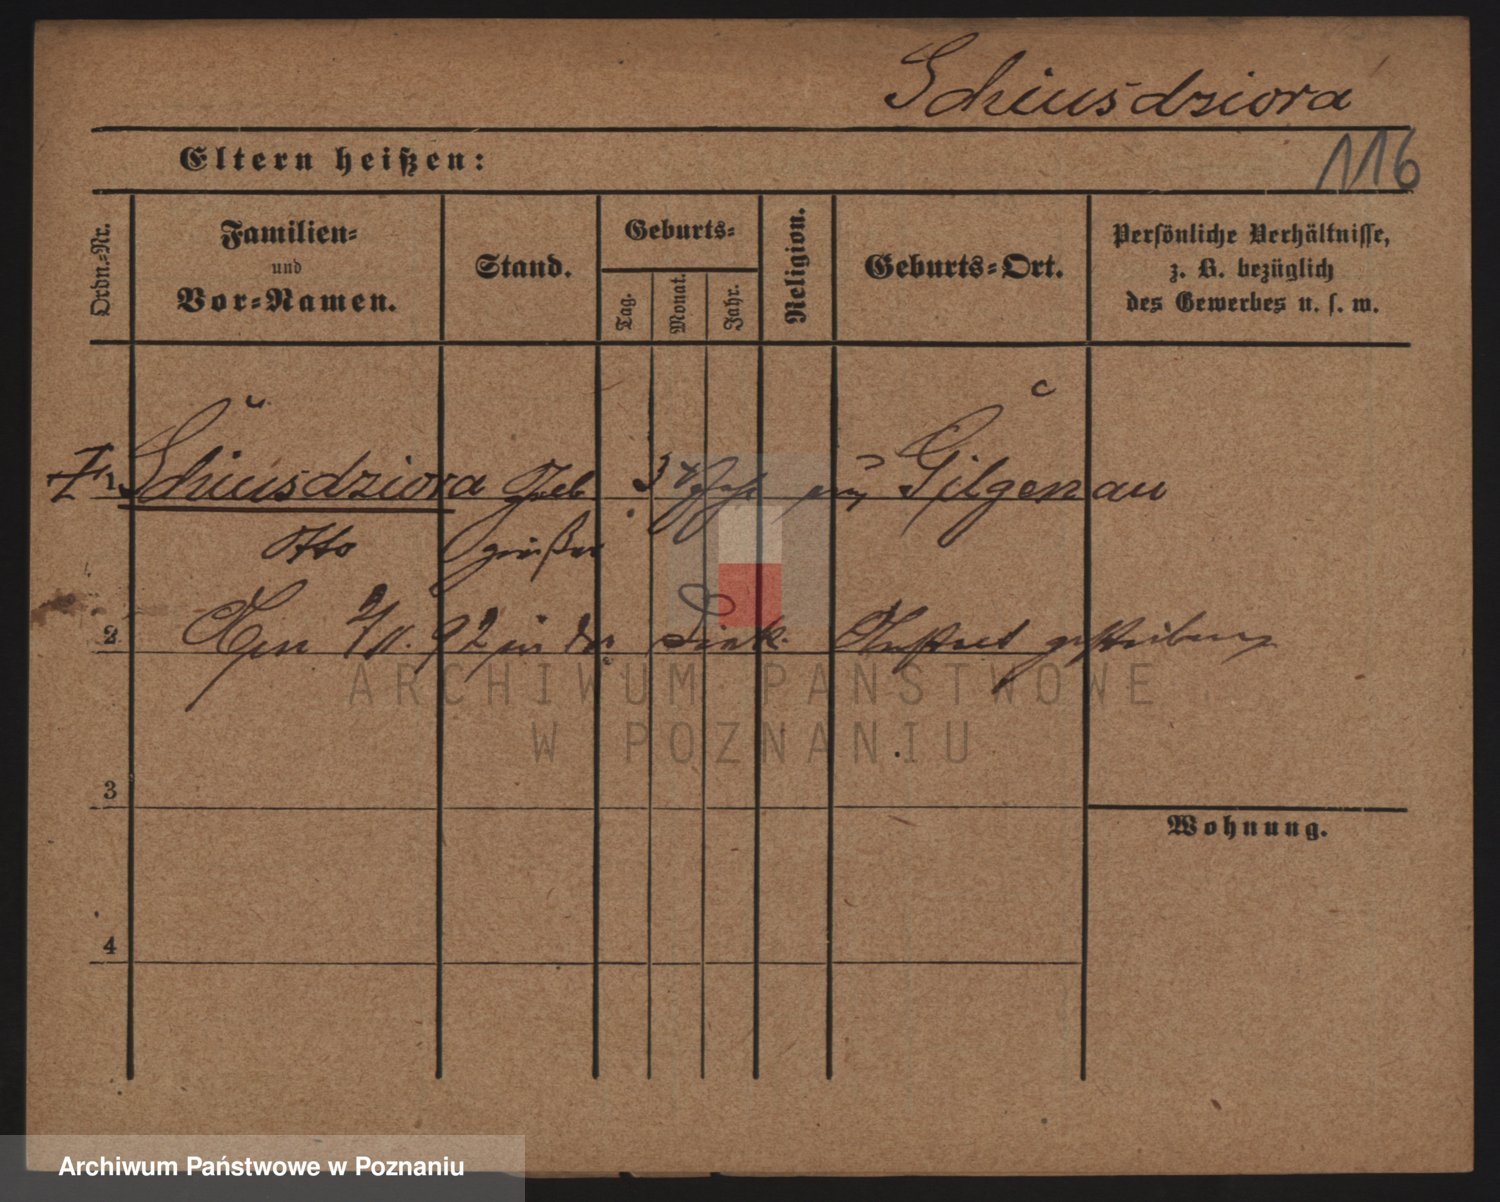 Schiusdziora
116
Eltern heißen:
Ordn.-Nr.
Familien-
und
Vor-Namen.
Stand.
Geburts-
Tag.
Monat.
Jahr.
Religion.
Geburts-Ort.
Persönliche Verhältnisse,
z. B. bezüglich
des Gewerbes u. s. w.
1 Schiusdziora 3 Gilgenau
Otto
2 92 in der
ARCHIWUM PAŃSTWOWE
W POZNANIU
3
Wohnung.
4
Archiwum Państwowe w Poznaniu